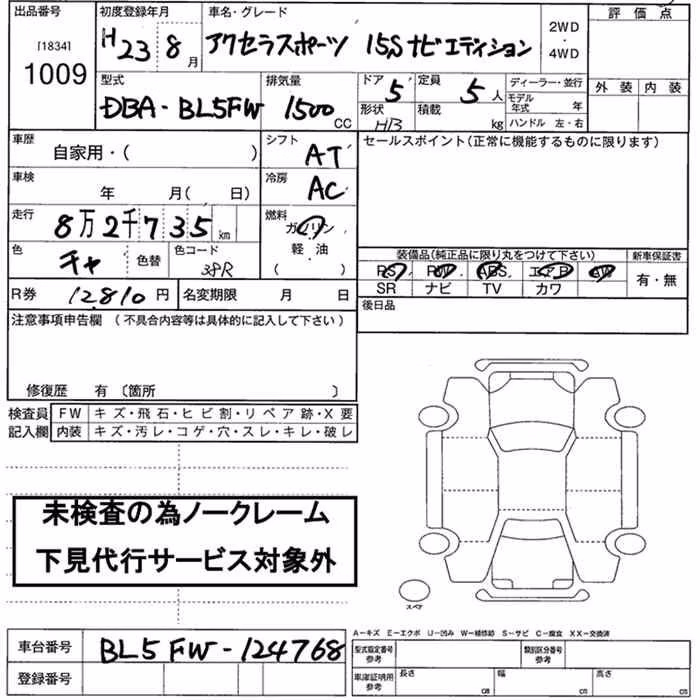 出品番号 初度登録年月 車名・グレード 評価点
[1834]
1009
H23 8月 アクセラスポーツ 15Sナビエディション 2WD・4WD
型式 排気量 ドア 定員 ディーラー・並行 外装 内装
DBA-BL5FW 1500cc 5 5人 モデル年式 年
形状 積載 kg ハンドル 左・右
HB
車歴 シフト セールスポイント(正常に機能するものに限ります)
自家用・( ) AT
車検 冷房
年 月( 日) AC
走行 燃料
8万2千735km ガソリン
軽・油
( )
色 色替 色コード 装備品(純正品に限り丸をつけて下さい) 新車保証書
チャ 38R PS PW ABS エアB AW 有・無
SR ナビ TV カワ
R券 12810円 名変期限 月 日 後日品
注意事項申告欄 (不具合内容等は具体的に記入して下さい)
修復歴 有 〔箇所 〕
検査員 FW キズ・飛石・ヒビ割・リペア跡・X要
記入欄 内装 キズ・汚レ・コゲ・穴・スレ・キレ・破レ
未検査の為ノークレーム
下見代行サービス対象外
スペア
A-キズ E-エクボ U-凹み W-補修跡 S-サビ C-腐食 XX-交換済
車台番号 BL5FW-124768 型式指定番号 参考 類別区分番号 参考
登録番号 車庫証明用 参考 長さ cm 幅 cm 高さ cm